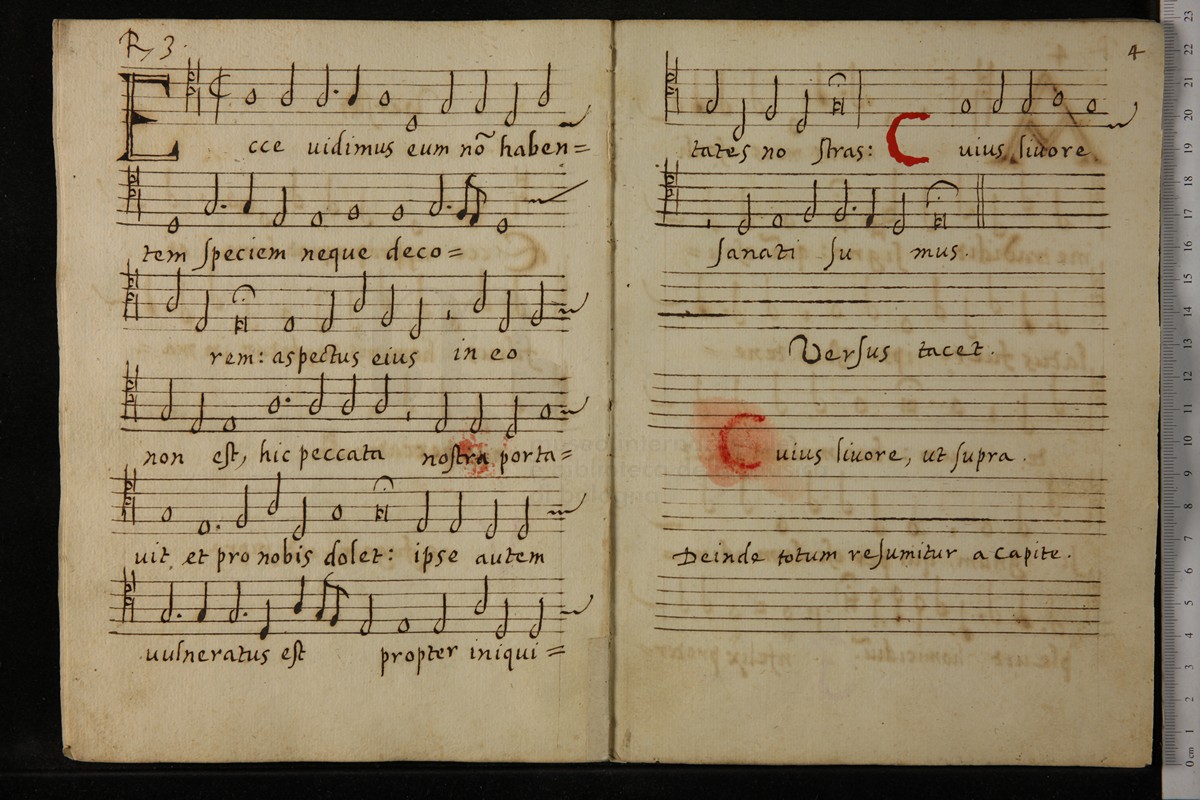 R, 3.
Ecce uidimus eum nõ haben=
tem speciem neque deco=
rem: aspectus eius in eo
non est, hic peccata nostra porta=
uit et pro nobis dolet: ipse autem
uulneratus est propter iniqui=
4
tates nostras: Cuius liuore
sanati sumus.
Versus tacet.
Cuius liuore, ut supra.
Deinde totum resumitur a capite.